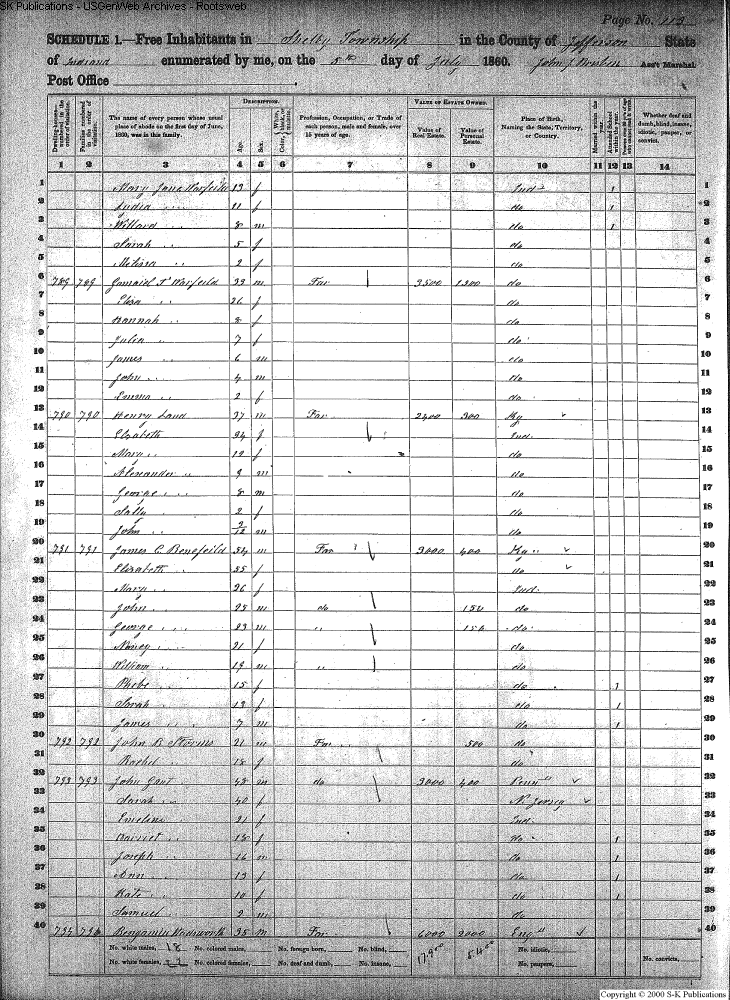 SK Publications - USGenWeb Archives - Rootsweb
Page No. 113
SCHEDULE 1.—Free Inhabitants in Shelby Township in the County of Jefferson State
of Indiana enumerated by me, on the 5th day of July 1860. John J Ass't Marshal
Post Office
Dwelling-houses—numbered in the order of visitation.
Families numbered in the order of visitation.
The name of every person whose usual place of abode on the first day of June, 1860, was in this family.
DESCRIPTION.
Age.
Sex.
Color, White, black, or mulatto.
Profession, Occupation, or Trade of each person, male and female, over 15 years of age.
VALUE OF ESTATE OWNED.
Value of Real Estate.
Value of Personal Estate.
Place of Birth, Naming the State, Territory, or Country.
Married within the year.
Attended School within the year.
Whether deaf and dumb, blind, insane, idiotic, pauper, or convict.
1 2 3 4 5 6 7 8 9 10 11 12 13 14
1 Mary Jane Warfeild 13 f Ind 1 1
2 Lydia " 11 f do 1 2
3 Willard " 8 m do 1 3
4 Sarah " 5 f do 4
5 Melissa " 2 f do 5
6 789 789 T Warfeild 33 m Far 3500 1300 do 6
7 Eliza " 26 f do 7
8 Hannah " 8 f do 8
9 Julia " 7 f do 9
10 James " 6 m do 10
11 John " 4 m do 11
12 Emma " 2 f do 12
13 790 790 Henry Land 37 m Far 2400 300 Ky 13
14 Elizabeth 34 f Ind 14
15 Mary " 12 f do 15
16 Alexander " 9 m do 16
17 George " 8 m do 17
18 Sally " 2 f do 18
19 John " 2/12 m do 19
20 791 791 James C Benefeild 54 m Far 3000 400 Ky 20
21 Elizabeth " 55 f do 21
22 Mary " 26 f Ind 22
23 John " 25 m do 150 do 23
24 George " 23 m " 150 do 24
25 Nancy " 21 f do 25
26 William " 19 m " do 26
27 Phebe " 15 f do 1 27
28 Sarah " 13 f do 1 28
29 James " 7 m do 1 29
30 792 792 John B Storms 21 m Far 500 do 30
31 Rachel " 18 f do 31
32 793 793 John 48 m do 3000 400 Penn 32
33 Sarah " 40 f N. Jersey 33
34 Emeline " 21 f Ind 34
35 Harriet " 18 f do 1 35
36 Joseph " 16 m do 1 36
37 Ann " 13 f do 1 37
38 Kate " 10 f do 1 38
39 Samuel " 2 m do 39
40 Benjamin 35 m Far 6000 2000 Eng 40
No. white males, 18 No. colored males, No. foreign born, No. blind, No. idiotic,
No. white females, 22 No. colored females, No. deaf and dumb, No. insane, No. paupers, No. convicts,
Copyright © 2000 S-K Publications